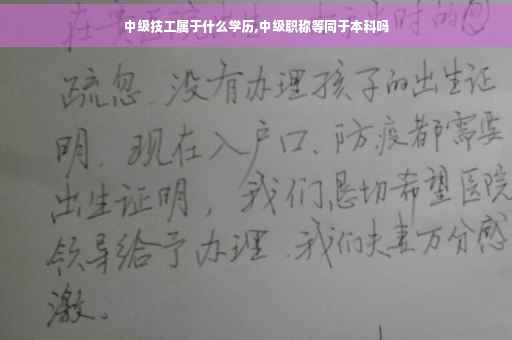 中级技工属于什么学历,中级职称等同于本科吗
时的
疏忽、没有办理孩子的出生证
明、现在入户口、防疫都需要
出生证明，我们恳切希望医院
领导给予办理、我们夫妻万分感
激。